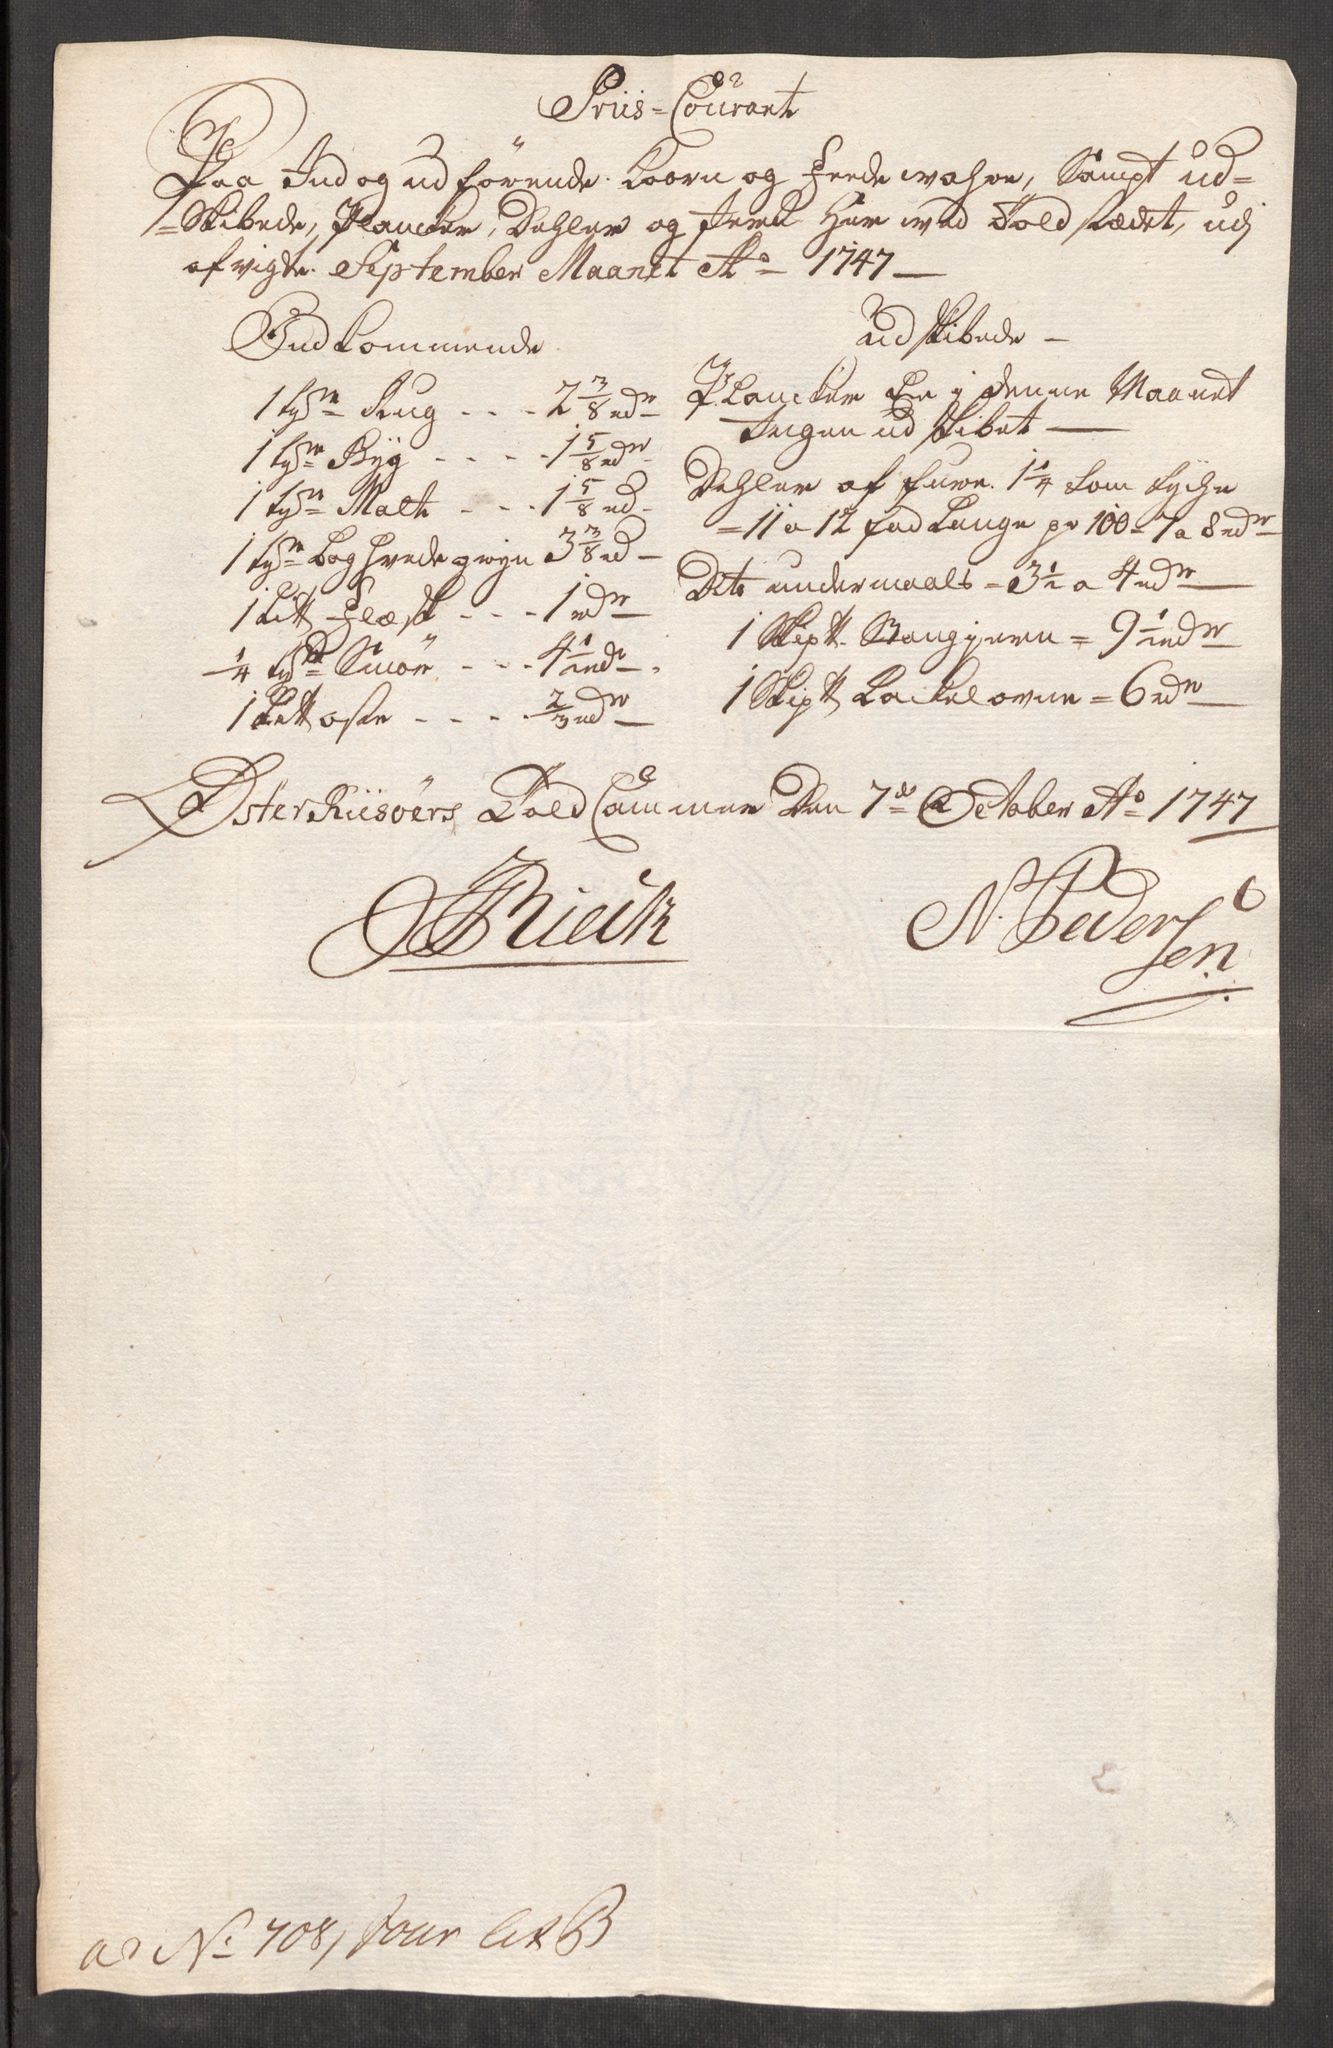 Priis-Courant
Paa Ind og udförende Koorn og Feede wahre, Sampt ud=
=Skibede, Plancker, Dehler og Jern Her wed Told stædet, udj
afvigte September Maanet Ao 1747
Indkommende
1 tyn Rug - - - 2 3/8 rdr
1 tyn Byg - - - - 1 5/8 rdr
1 tyn Malt - - - 1 5/8 rd
1 tyn bog hvede gryn 3 3/8 rd
1 Litt Flæsk - - - 1 rdr
1/4 tyn Smör - - - 4 1/2 rdr
1 Litt oste - - - - 2/3 rdr
Udskibede
Plancker Er j denne Maanet
Jngen udskibet
Dehler af Fure 1 1/4 tom tyche
= 11 a 12 fod lange pr 100 = 7 a 8 rdr
Dito undermaals = 3 1/2 a 4 rdr
1 Skipt Stangjern = 9 1/2 rdr
1 Skipt Kackelovne = 6 rdr
Øster Riisöers Told Cammer Den 7de October Ao 1747
Rieck
N. Peder
sen
No 708, Litr B